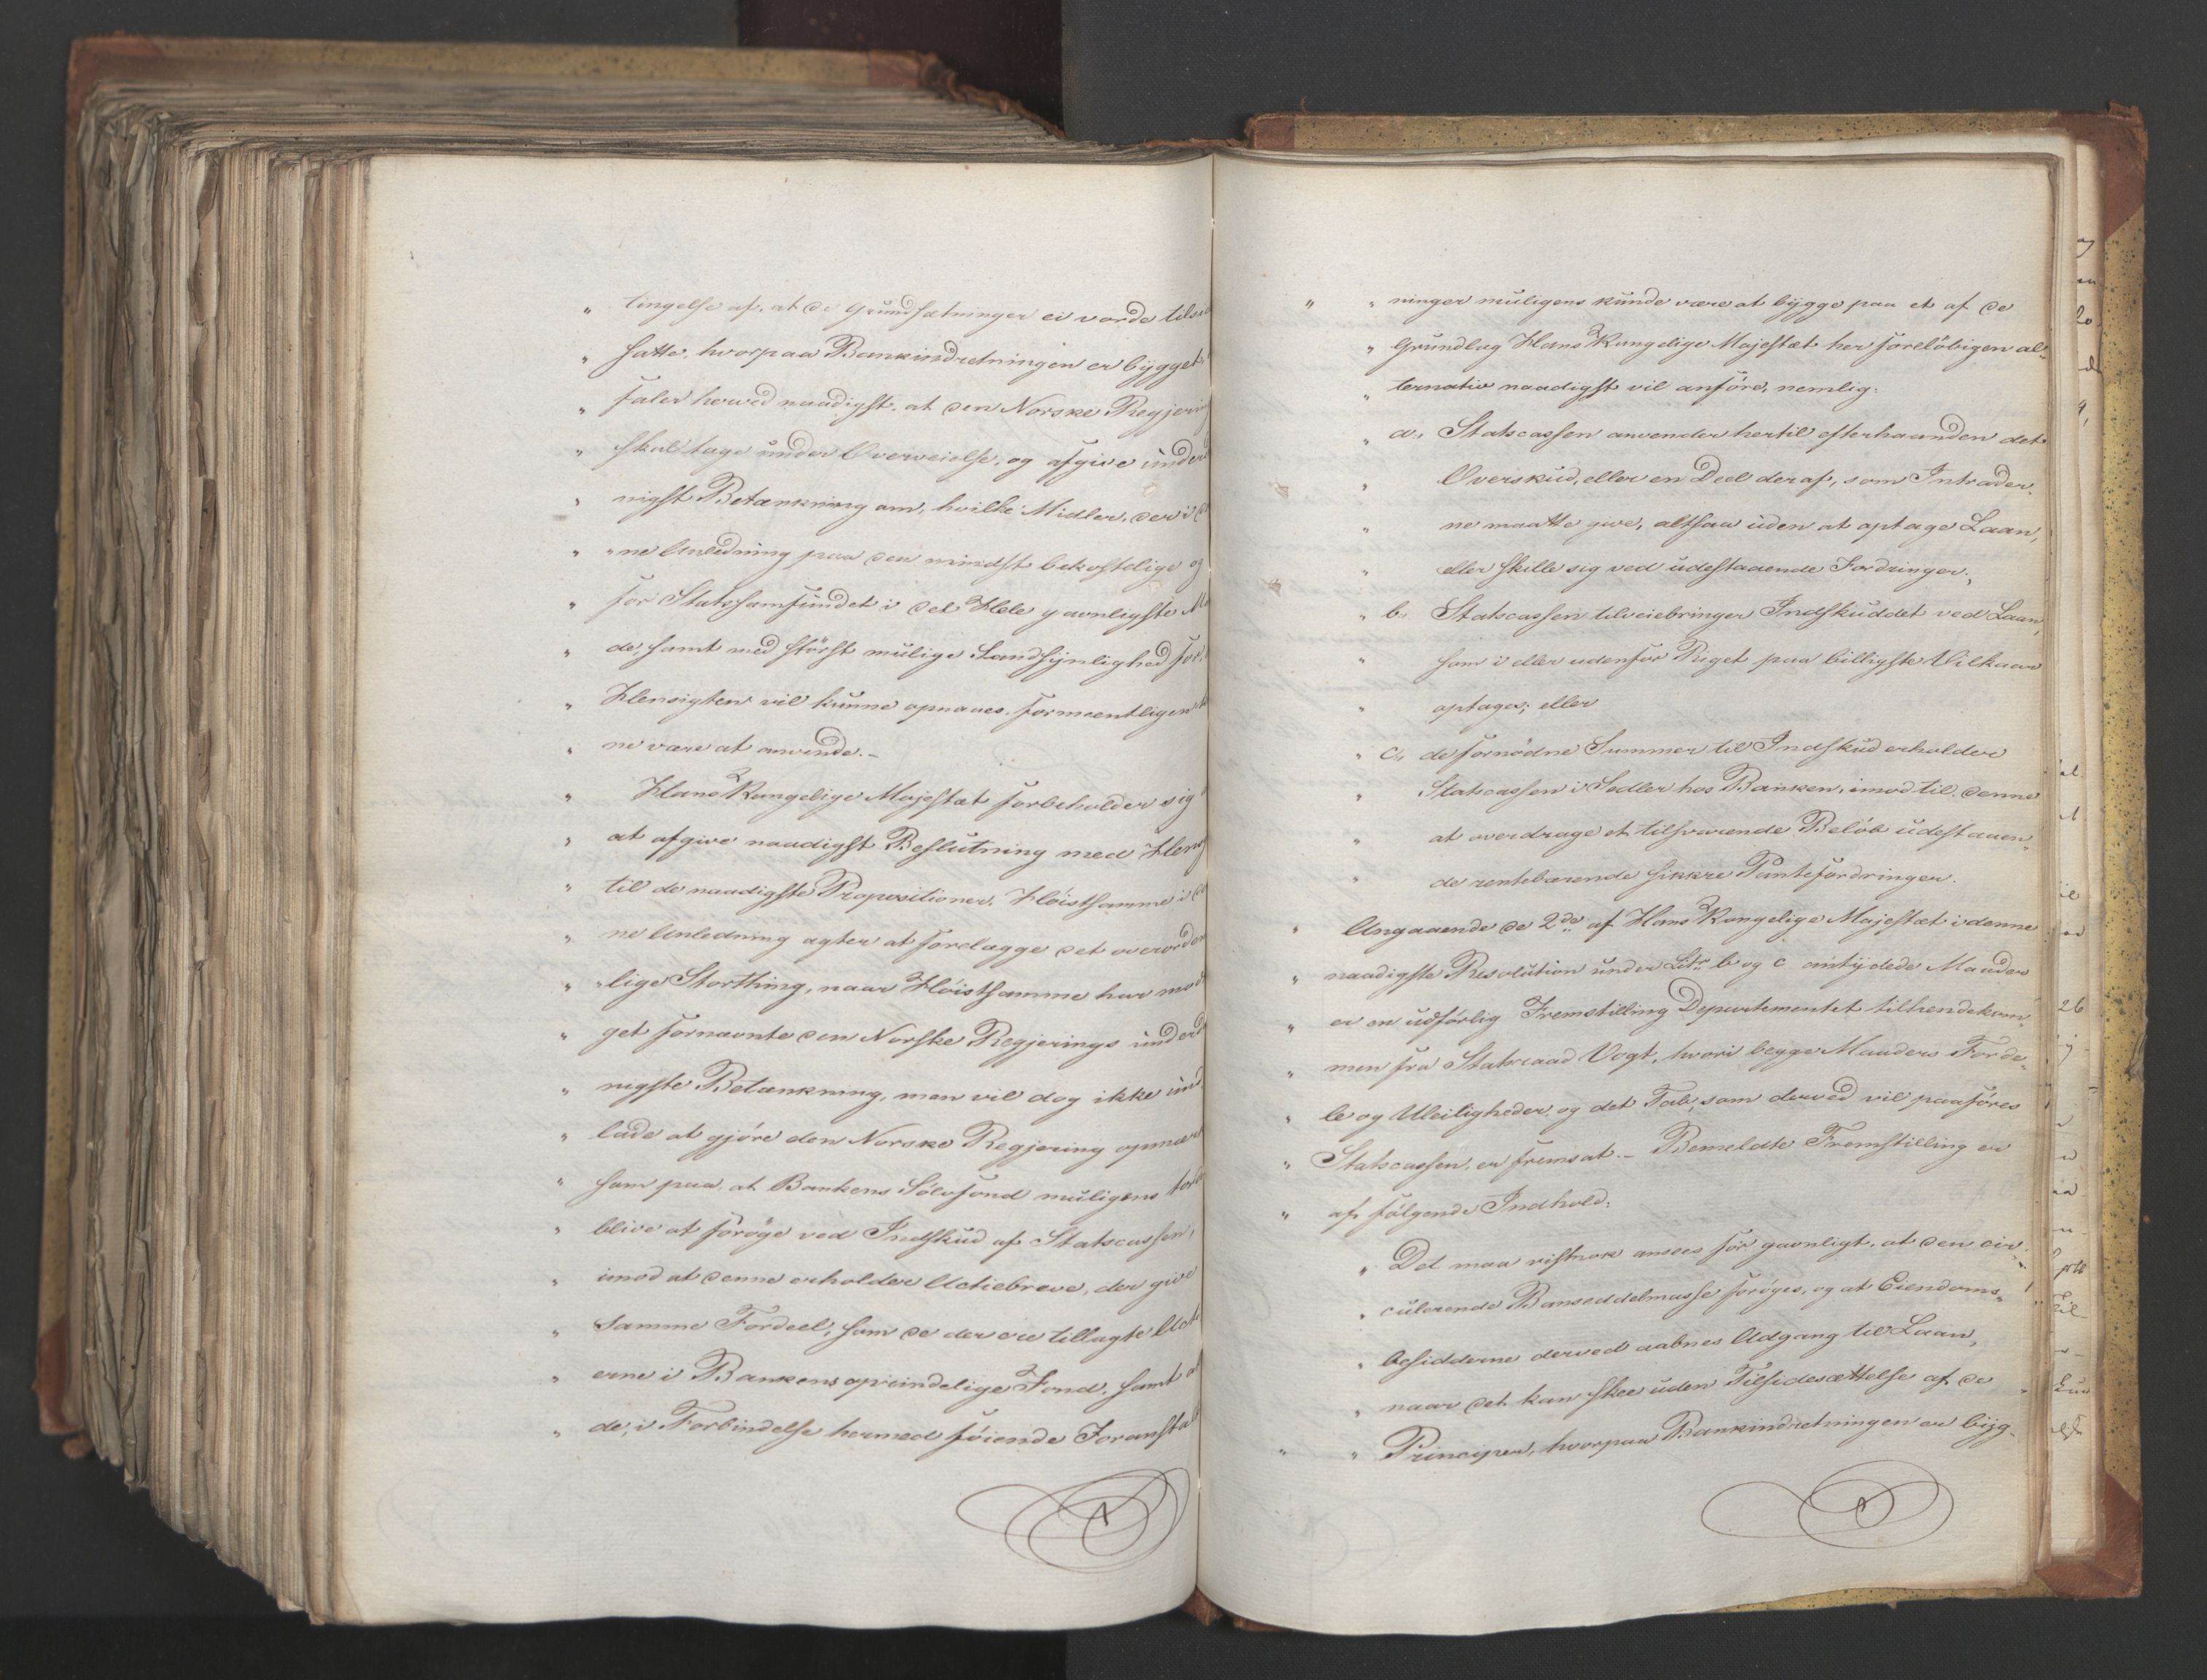 „ tingelse af, at de Grundsætninger ei vorde tilsi
„ satte, hvorpaa Bankindretningen er bygget
„ faler herved naadigst, at den Norske Regjering
„ skal tage under Overveielse, og afgive underd
„ nigst Betænkning om, hvilke Midler, der i de
„ „ ne Anledning paa den mindst bekostelige og
„ for Statssamfundet i det Hele gavnligste Ma
„ de, samt med størst mulige Sandsynlighed for,
„ Hensigten vil kunne opnaaes, formeentligen
„ ne være at anvende.-
„ Hans Kongelige Majestæt forbeholder sig
„ at afgive naadigst Beslutning med Hens
„ til de naadigste Propositioner, Høistsamme i de
„ ne Anledning agter at forelægge det overorden
„ „ lige Storthing, naar Høistsamme har mod
„ get fornævnte den Norske Regjerings underd
„ nigste Betænkning, men vil dog ikke und
„ lade at gjøre den Norske Regjering opmærk
„ som paa, at Bankens Sølvfond muligens torde
„ blive at forøge ved Indskud af Statscassen,
„ imod at denne erholder Actiebreve, der give
„ Samme Fordeel, som de der ere tillagte Acti
„ erne i Bankens oprindelige Fond, samt at
„ de, i Forbindelse hermed føiende Foranstal
„ „ ninger muligens kunde være at bygge paa et af de
„ Grundlag Hans Kongelige Majestæt her foreløbigen al„
„ ternativ naadigst vil anføre, nemlig:
„ a., Statscassen anvender hertil efterhaanden det
„ Overskud, eller en Deel deraf, som Intrader„
„ ne maatte give, altsaa uden at optage Laan,
„ eller skille sig ved udestaaende Fordringer;
„ b., Statscassen tilveiebringer Indskuddet ved Laan,
„ som i eller udenfor Riget paa billigste Vilkaar
„ optages; eller
„ c., de fornødne Summer til Indskud erholder
„ Statscassen i Sedler hos Banken, imod til denne
„ at overdrage et tilsvarende Beløb udestaaen„
„ de rentebærende sikkre Pantefordringer.
„ Angaaende de 2de af Hans Kongelige Majestæt i denne
„ naadigste Resolution under Litr b og c antydede Maader
„ er en udførlig Fremstilling Departementet tilhendekom„
„ men fra Statsraad Vogt, hvori begge Maaders Forde„
„ le og Uleiligheder, og det Tab, som derved vil paaføres
„ Statscassen, er fremsat.- Bemeldte Fremstilling er
„ af følgende Indhold:
„ Det maa vistnok ansees for gavnligt, at den cir„
„ culerende Banseddelmasse forøges, og at Eiendoms„
„ besidderne derved aabnes Adgang til Laan,
„ naar det kan skee uden Tilsidesættelse af de
„ „ Principer, hvorpaa Bankindretningen er byg„